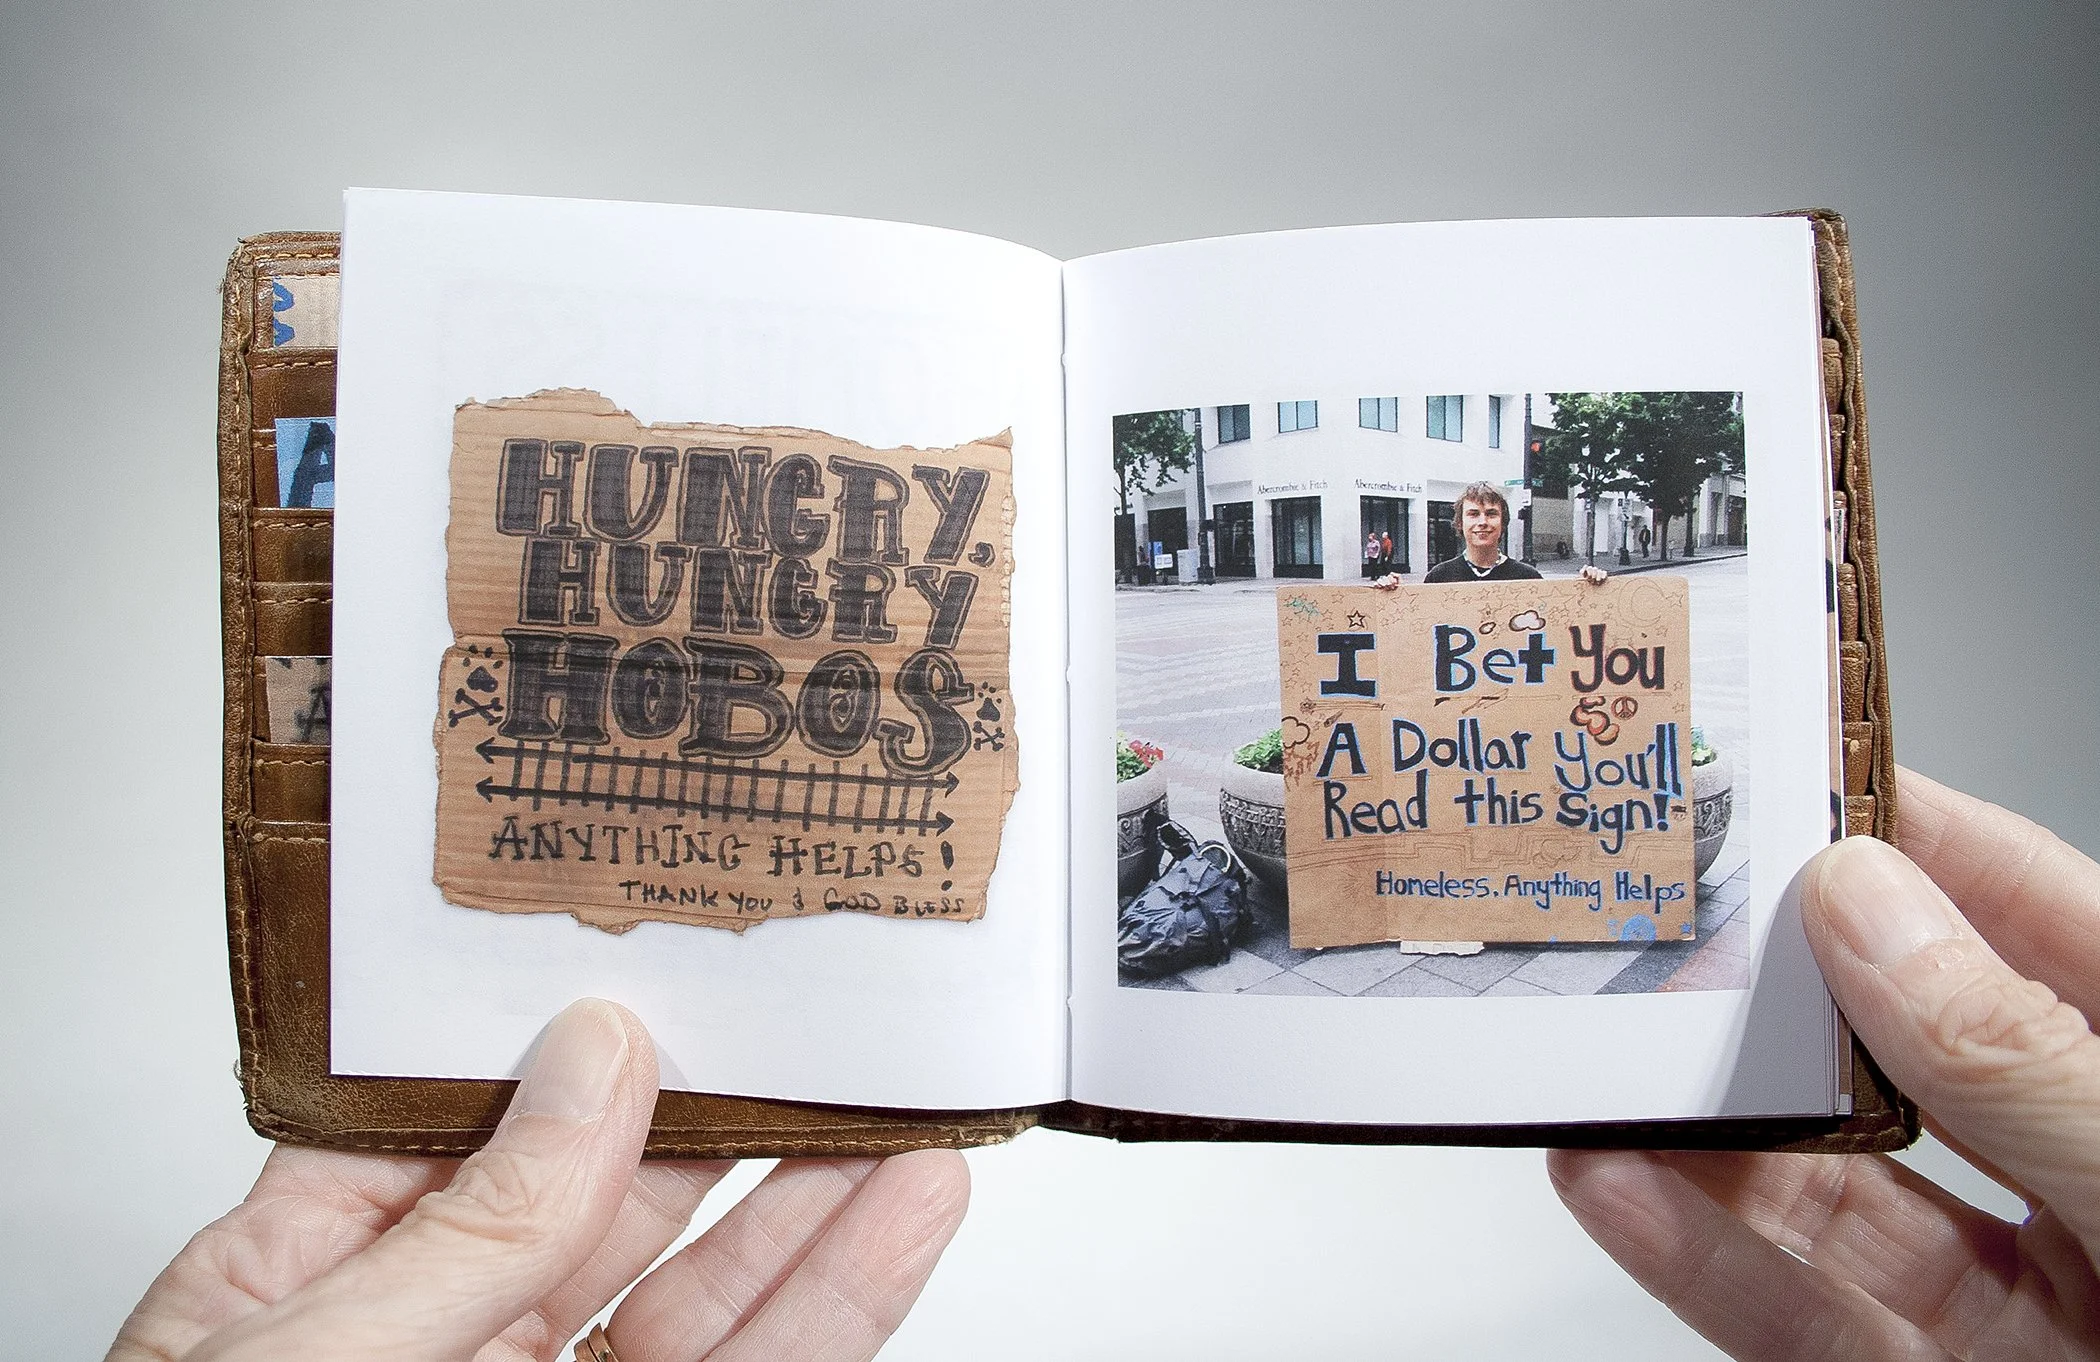 HUNGRY,
HUNGRY
HOBOS
ANYTHING HELPS!
THANK YOU & GOD BLESS
Abercrombie & Fitch
Abercrombie & Fitch
I Bet You
A Dollar You'll
Read this Sign!
Homeless. Anything Helps